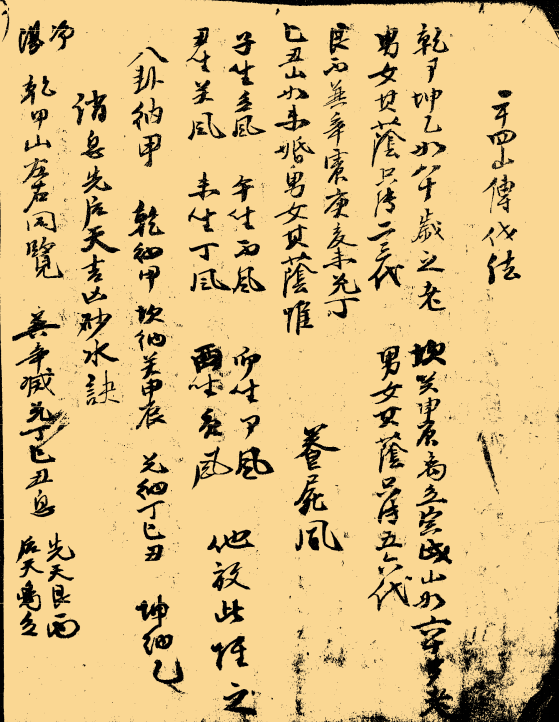 二十四山傳代法
乾甲坤乙如八十歲之老 坎癸申辰离壬寅戌山如六十歲老
男女其蔭只傳二三代 男女其蔭只傳五六代
艮丙巽辛震庚亥未兑丁
巳丑山如未婚男女其蔭惟 養屍風
子生壬風 午生丙風 卯生甲風 他放此推之
丑生癸風 未生丁風 酉生庚風
八卦納甲 乾納甲 坎納癸申辰 兑納丁巳丑 坤納乙
消息先后天吉凶砂水訣
净 乾甲山左右同覽 巽辛滅兑丁巳丑息 先天艮丙
后天离壬